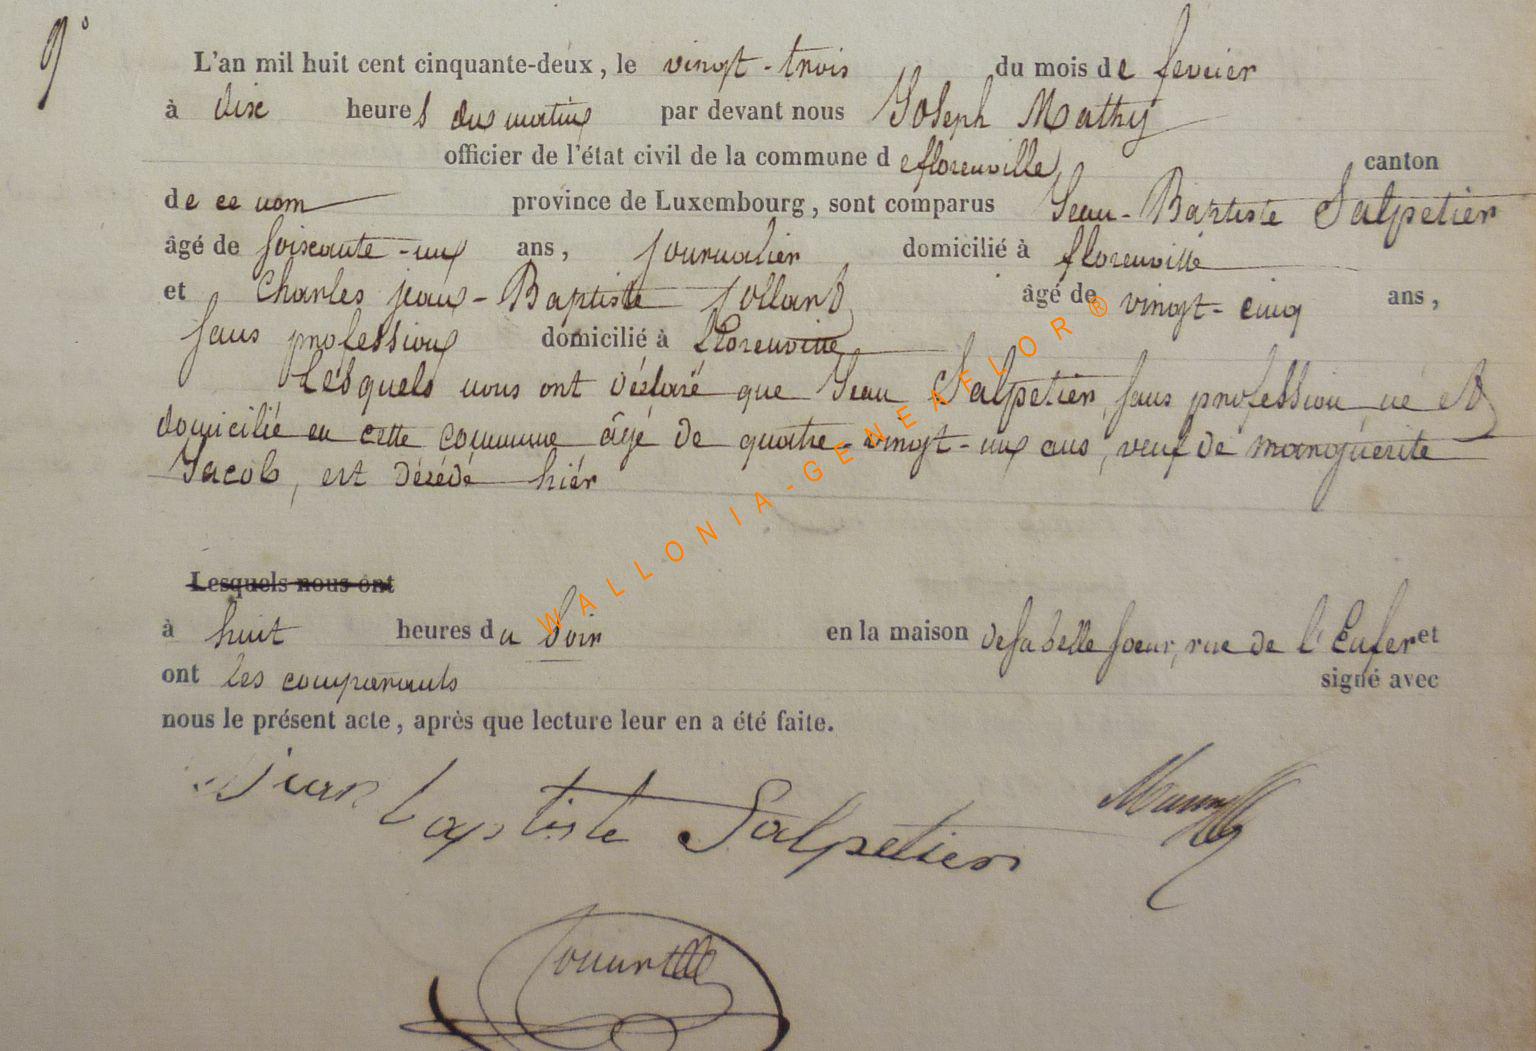 9°
L'an mil huit cent cinquante-deux, le vingt-trois du mois de fevrier
à dix heures du matin par devant nous Joseph Mathy
officier de l'état civil de la commune de florenville canton
de ce nom province de Luxembourg, sont comparus Jean-Baptiste Salpetier
âgé de soixante-un ans, journalier domicilié à florenville
et Charles jean-Baptiste âgé de vingt-cinq ans,
sans profession domicilié à florenville
Lesquels nous ont déclaré que Jean Salpetier, sans profession né et
domicilié en cette commune âgé de quatre-vingt-un ans, veuf de marguerite
Jacob, est décédé hiér
Lesquels nous ont
à huit heures du soir en la maison de sa belle soeur, rue de l'Enfer et
ont les comparants signé avec
nous le présent acte, après que lecture leur en a été faite.
jean baptiste Salpetier
WALLONIA-GENEAFLOR®